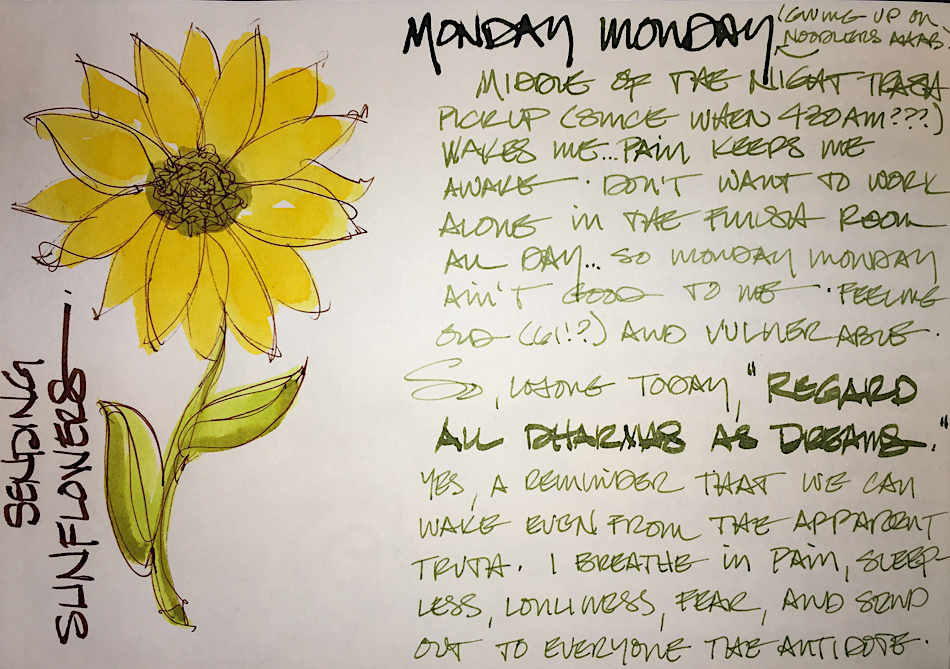 MONDAY MONDAY
(GIVING UP ON
NOODLERS AHAB)
MIDDLE OF THE NIGHT TRASH
PICKUP (SINCE WHEN 430AM???)
WAKES ME...PAIN KEEPS ME
AWAKE. DON'T WANT TO WORK
ALONE IN THE FINISH ROOM
ALL DAY... SO MONDAY MONDAY
AIN'T GOOD TO ME. FEELING
OLD (61!?) AND VULNERABLE.
SO, LOJONG TODAY, "REGARD
ALL DHARMAS AS DREAMS."
YES, A REMINDER THAT WE CAN
WAKE EVEN FROM THE APPARENT
TRUTH. I BREATHE IN PAIN, SLEEP-
LESS, LONLINESS, FEAR, AND SEND
OUT TO EVERYONE THE ANTIDOTE.
SENDING
SUNFLOWERS.